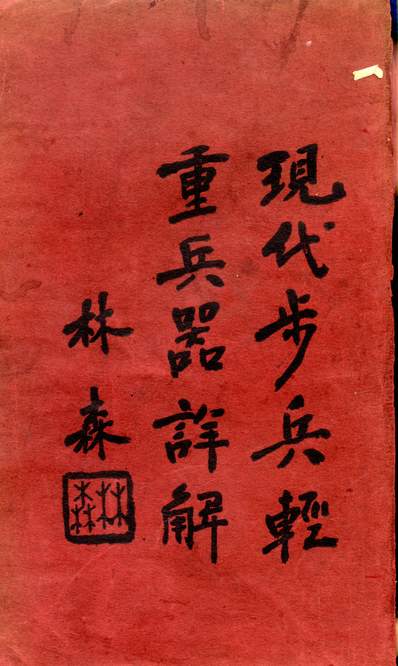 現代步兵輕
重兵器詳解
林森
林森